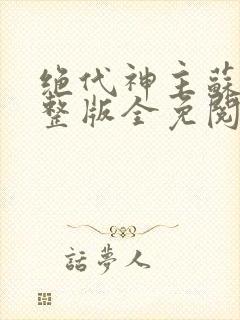 绝代神主蘇
整版全免閱
話夢人